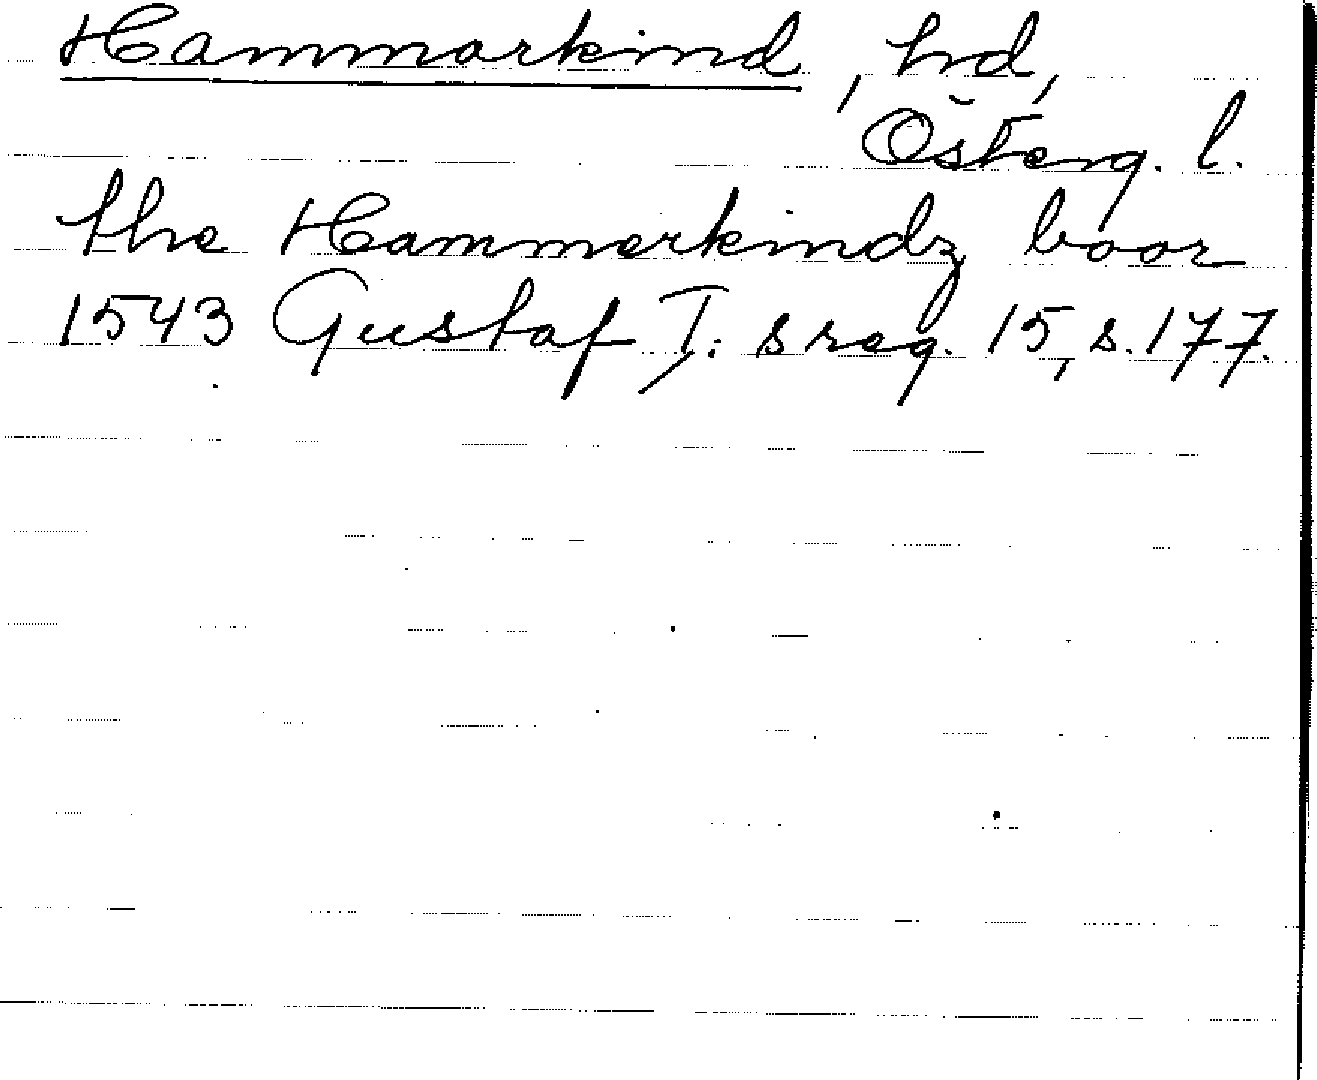 Hammarkind, hd,
Österg. l.
the Hammerkindz boar
1543 Gustaf I:s reg. 15, s. 177.